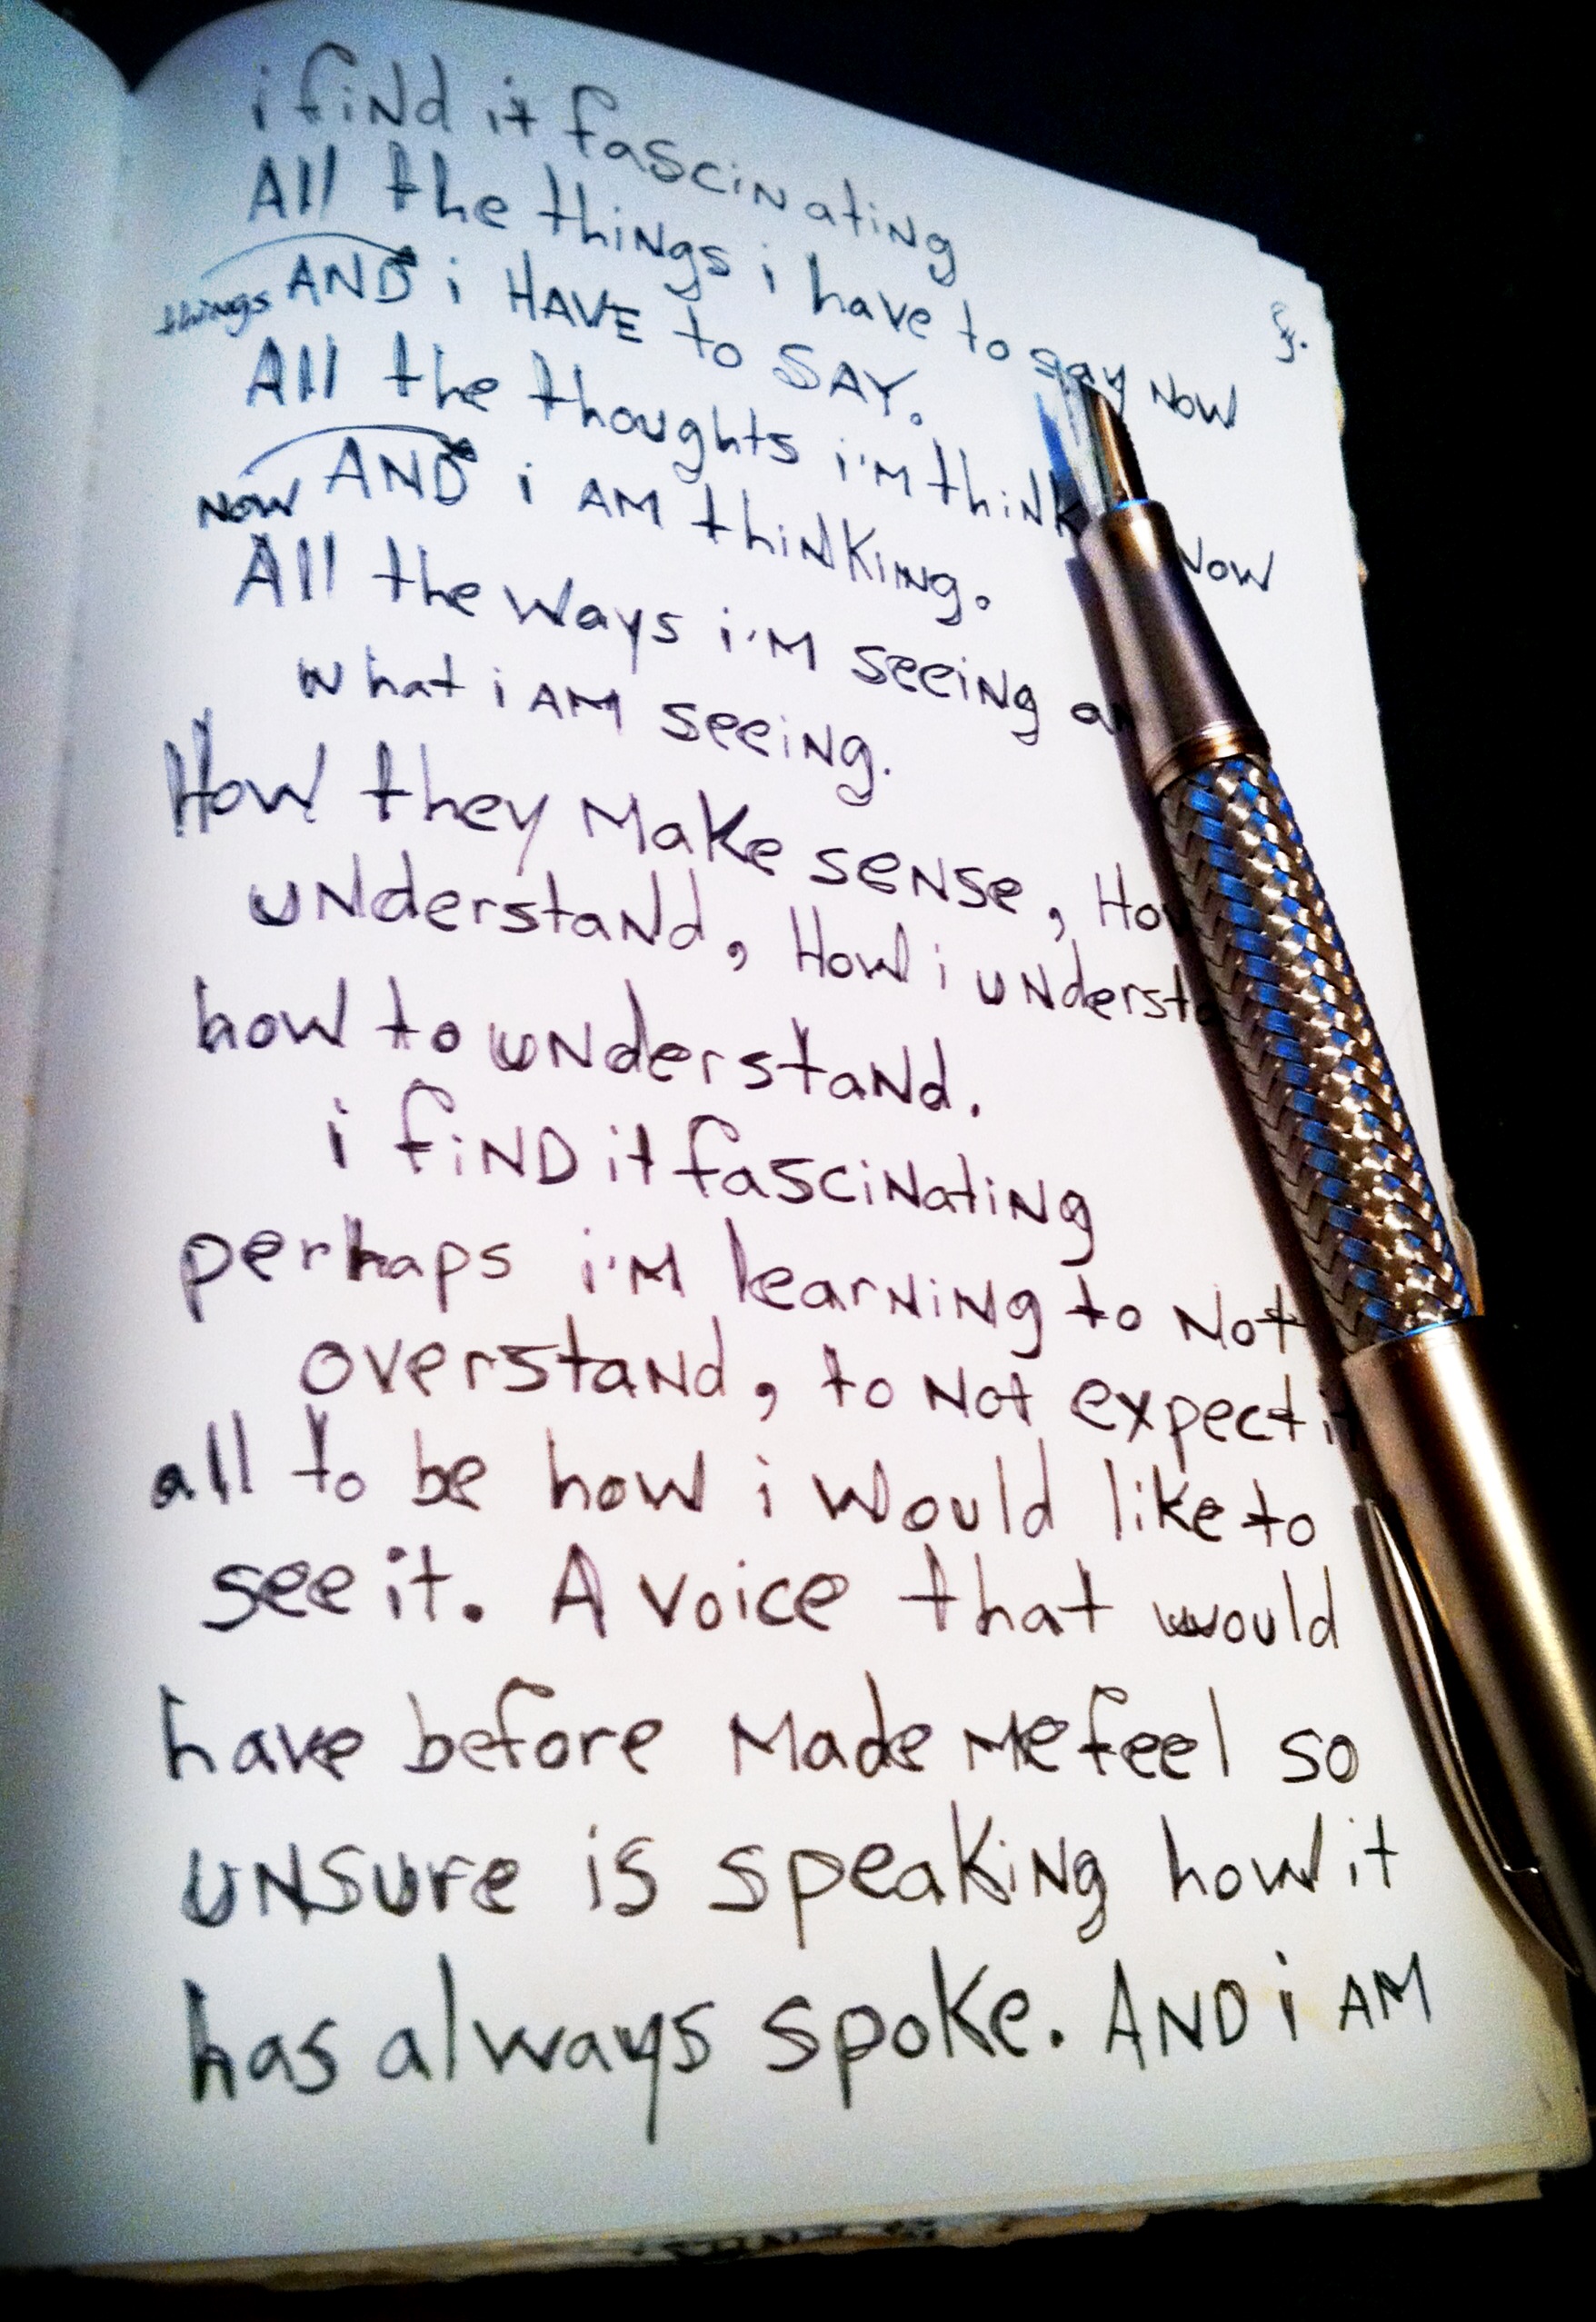 i find it fascinating
All the things i have to say now
things AND i HAVE to SAY.
All the thoughts i'm think Now
Now AND i AM thinking.
All the ways i'm seeing
what i AM seeing.
How they make sense, How
understand, How i understa
how to understand.
i find it fascinating
perhaps i'm learning to not
overstand, to not expect it
all to be how i would like to
see it. A voice that would
have before made me feel so
unsure is speaking how it
has always spoke. AND i AM